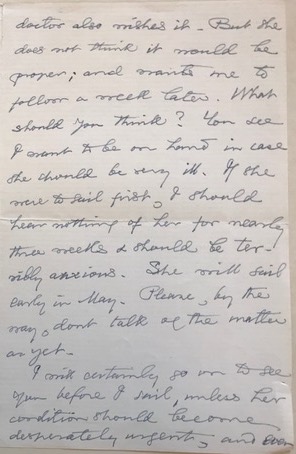 doctor also wishes it - But she
does not think it would be
proper; and wants me to
follow a week later. What
should you think? You see
I want to be on hand in case
she should be very ill. If she
were to sail first, I should
hear nothing of her for nearly
three weeks & should be ter-
ribly anxious. She will sail
early in May. Please, by the
way, dont talk of the matter
as yet.
I will certainly go on to see
you before I sail, unless her
condition should become
desperately urgent, and even